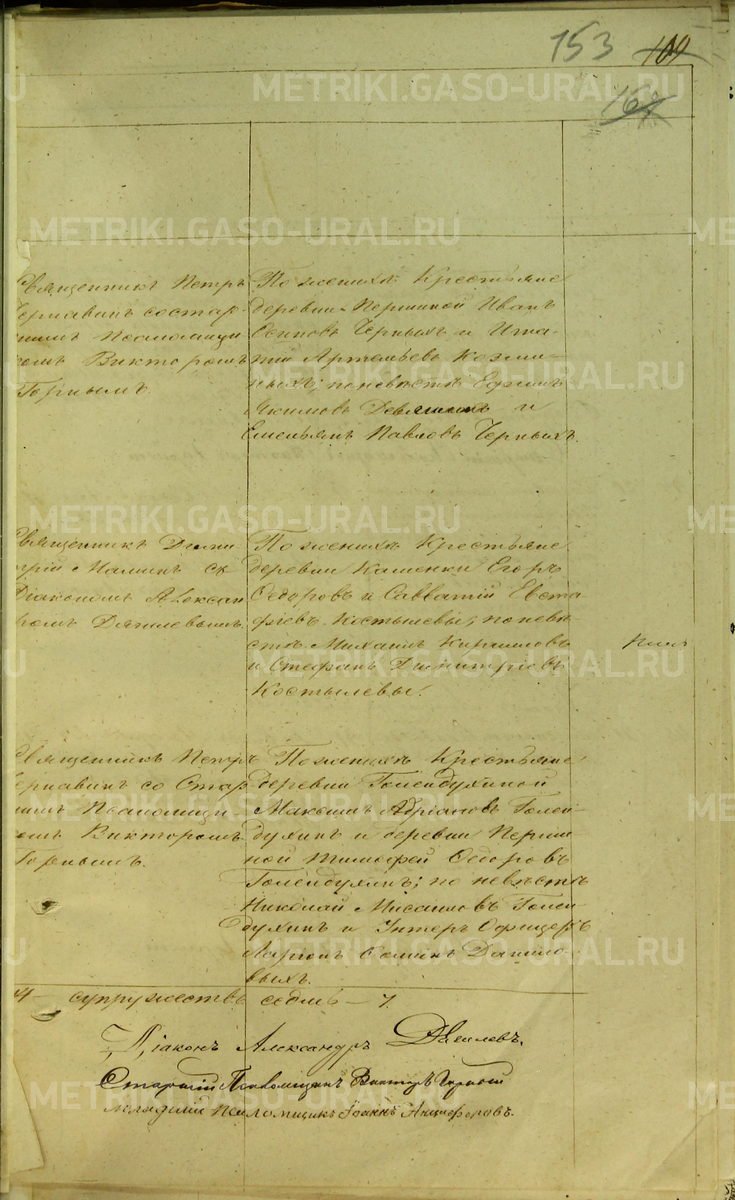 153 109
164
Священникъ Петръ
Чернавинъ со стар-
шимъ Псаломщи
комъ Викторомъ
Горнымъ.
По женихѣ: Крестьяне
деревни Першиной Иванъ
Осиповъ Черныхъ и Игна-
тій Артемьевъ Козми-
ныхъ; по невѣстѣ Ефимъ
Якимовъ Девяшинъ и
Емельянъ Павловъ Черныхъ.
Священникъ Дими
трій Маминъ съ
Діакономъ Алексан
дромъ Даниловымъ.
По женихѣ Крестьяне
деревни Каменки Егоръ
Ѳедоровъ и Савватій Евста
фіевъ Костылевы; по невѣ
стѣ Михаилъ Кириловъ
и Стефанъ Димитріевъ
Костылевы.
Священникъ Петръ
Чернавинъ со Стар
шимъ Псаломщи
комъ Викторомъ
Горнымъ.
По женихѣ Крестьяне
деревни Голендухиной
Максимъ Адріановъ Голен
духинъ и деревни Перши
ной Тимофей Ѳедоровъ
Голендухинъ; по невѣстѣ
Николай Мисаиловъ Голен
духинъ и Унтеръ Офицеръ
Ларіонъ Саминъ Данило
выхъ.
супружествъ седмь – 7.
Діаконъ Александръ Даниловъ.
Старшій Псаломщикъ Викторъ Горный
младшій Псаломщикъ Іоаннъ Анциферовъ.
METRIKI.GASO-URAL.RU